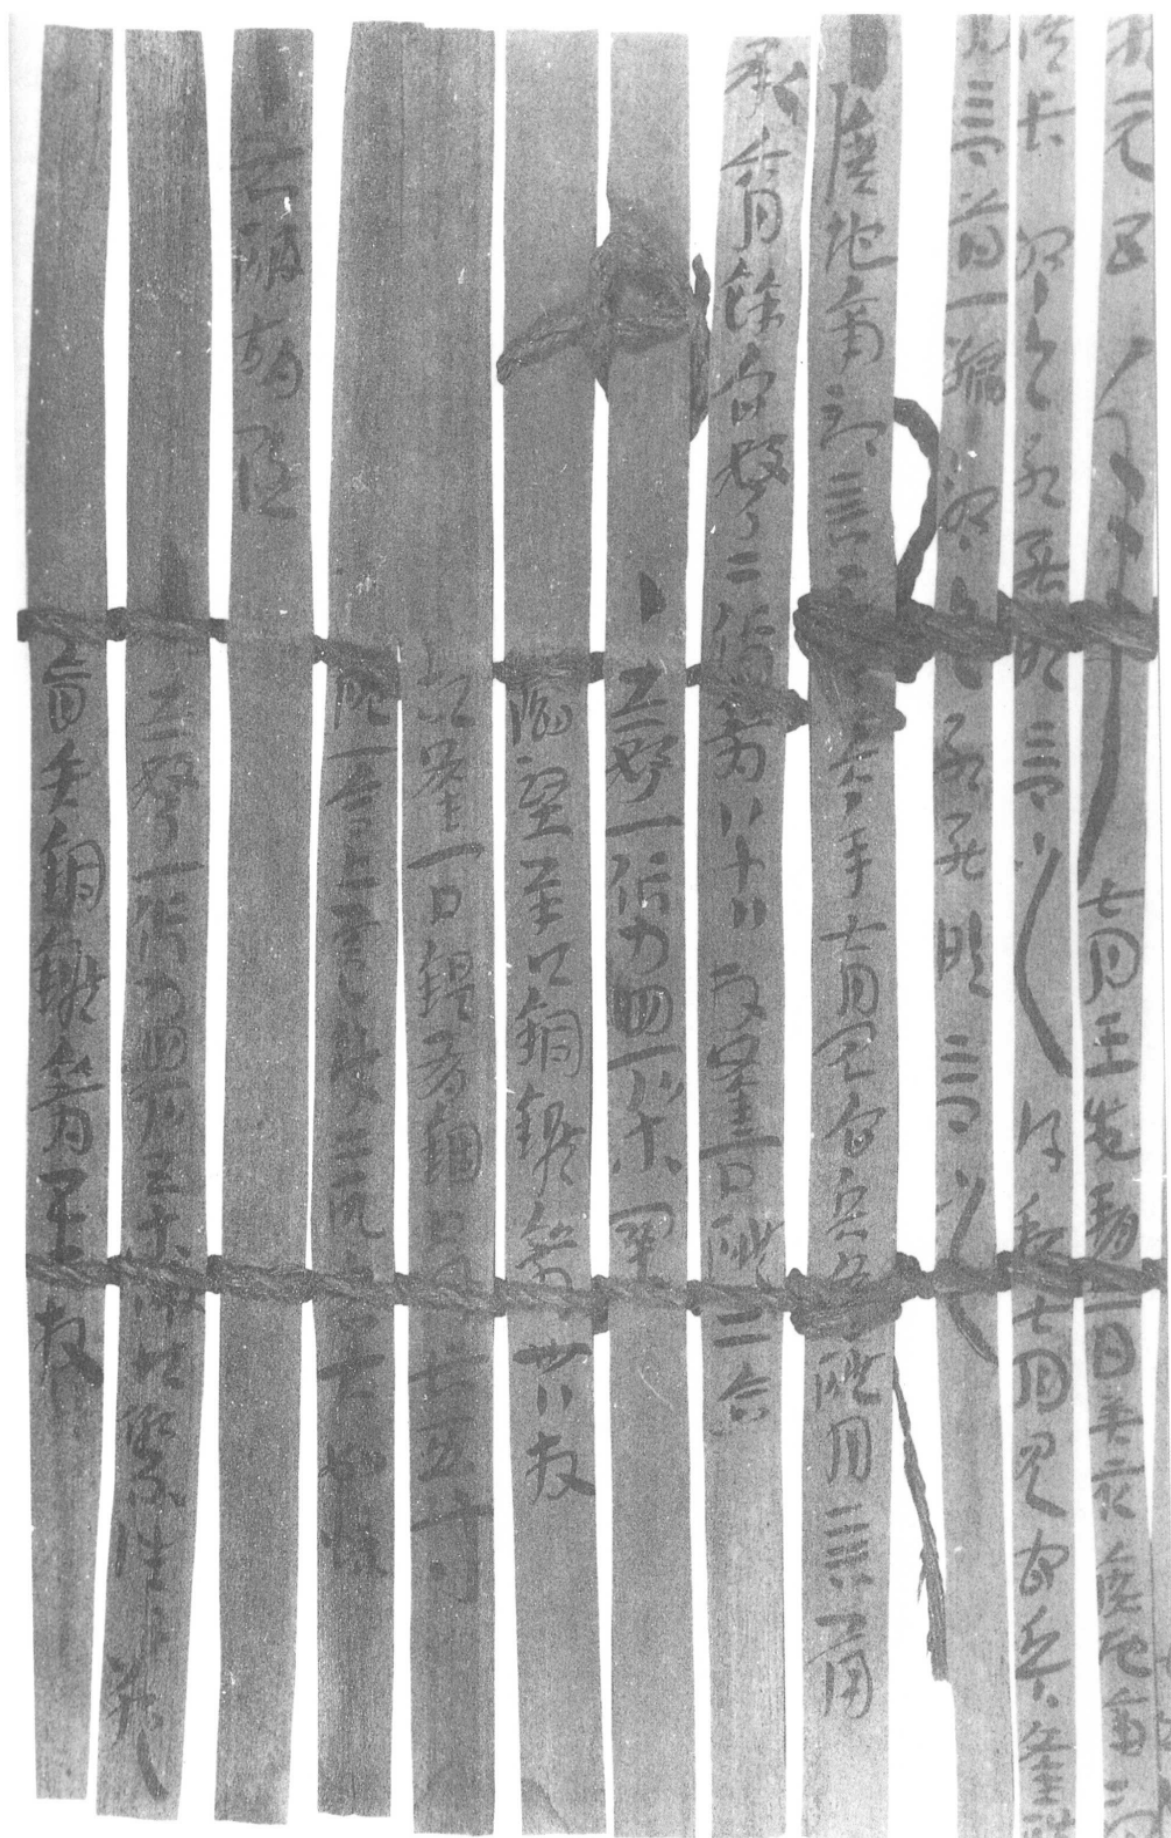 永元五年七月壬戌朔二日癸亥廣地南部
候長叩頭死罪敢言之謹移七月見官兵釜磑
月言簿一編叩頭死罪敢言之
廣地南部言永元五年七月見官兵釜磑月言簿
承六月餘官弩二張箭八十八枚釜一口磑二合
赤弩一張力四石木關
陷堅羊頭銅鍭箭卅八枚
故釜一口鍉有錮口呼長五寸
磑一合上蓋缺二所各大如疎
●右破胡隧
赤弩一張力四石五木破起繳往往絕
盲矢銅鍭箭五十枚